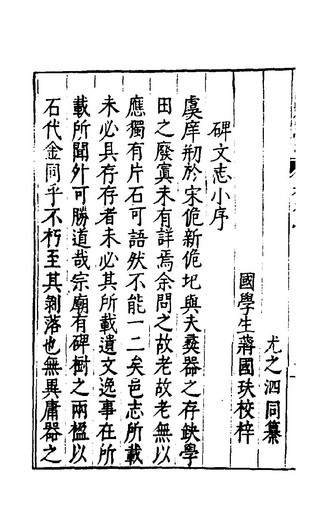 尤之泗同纂
國學生蔣國玞校梓
碑文志小序
虞庠剏於宋俺新俺圮與夫彝器之存缺學
田之廢寘未有詳焉余問之故老故老無以
應獨有片石可語然不能一二矣邑志所載
未必具存存者未必其所載遺文逸事在所
載所聞外可勝道哉宗廟有碑樹之兩楹以
石代金同乎不朽至其剝落也無異庸器之